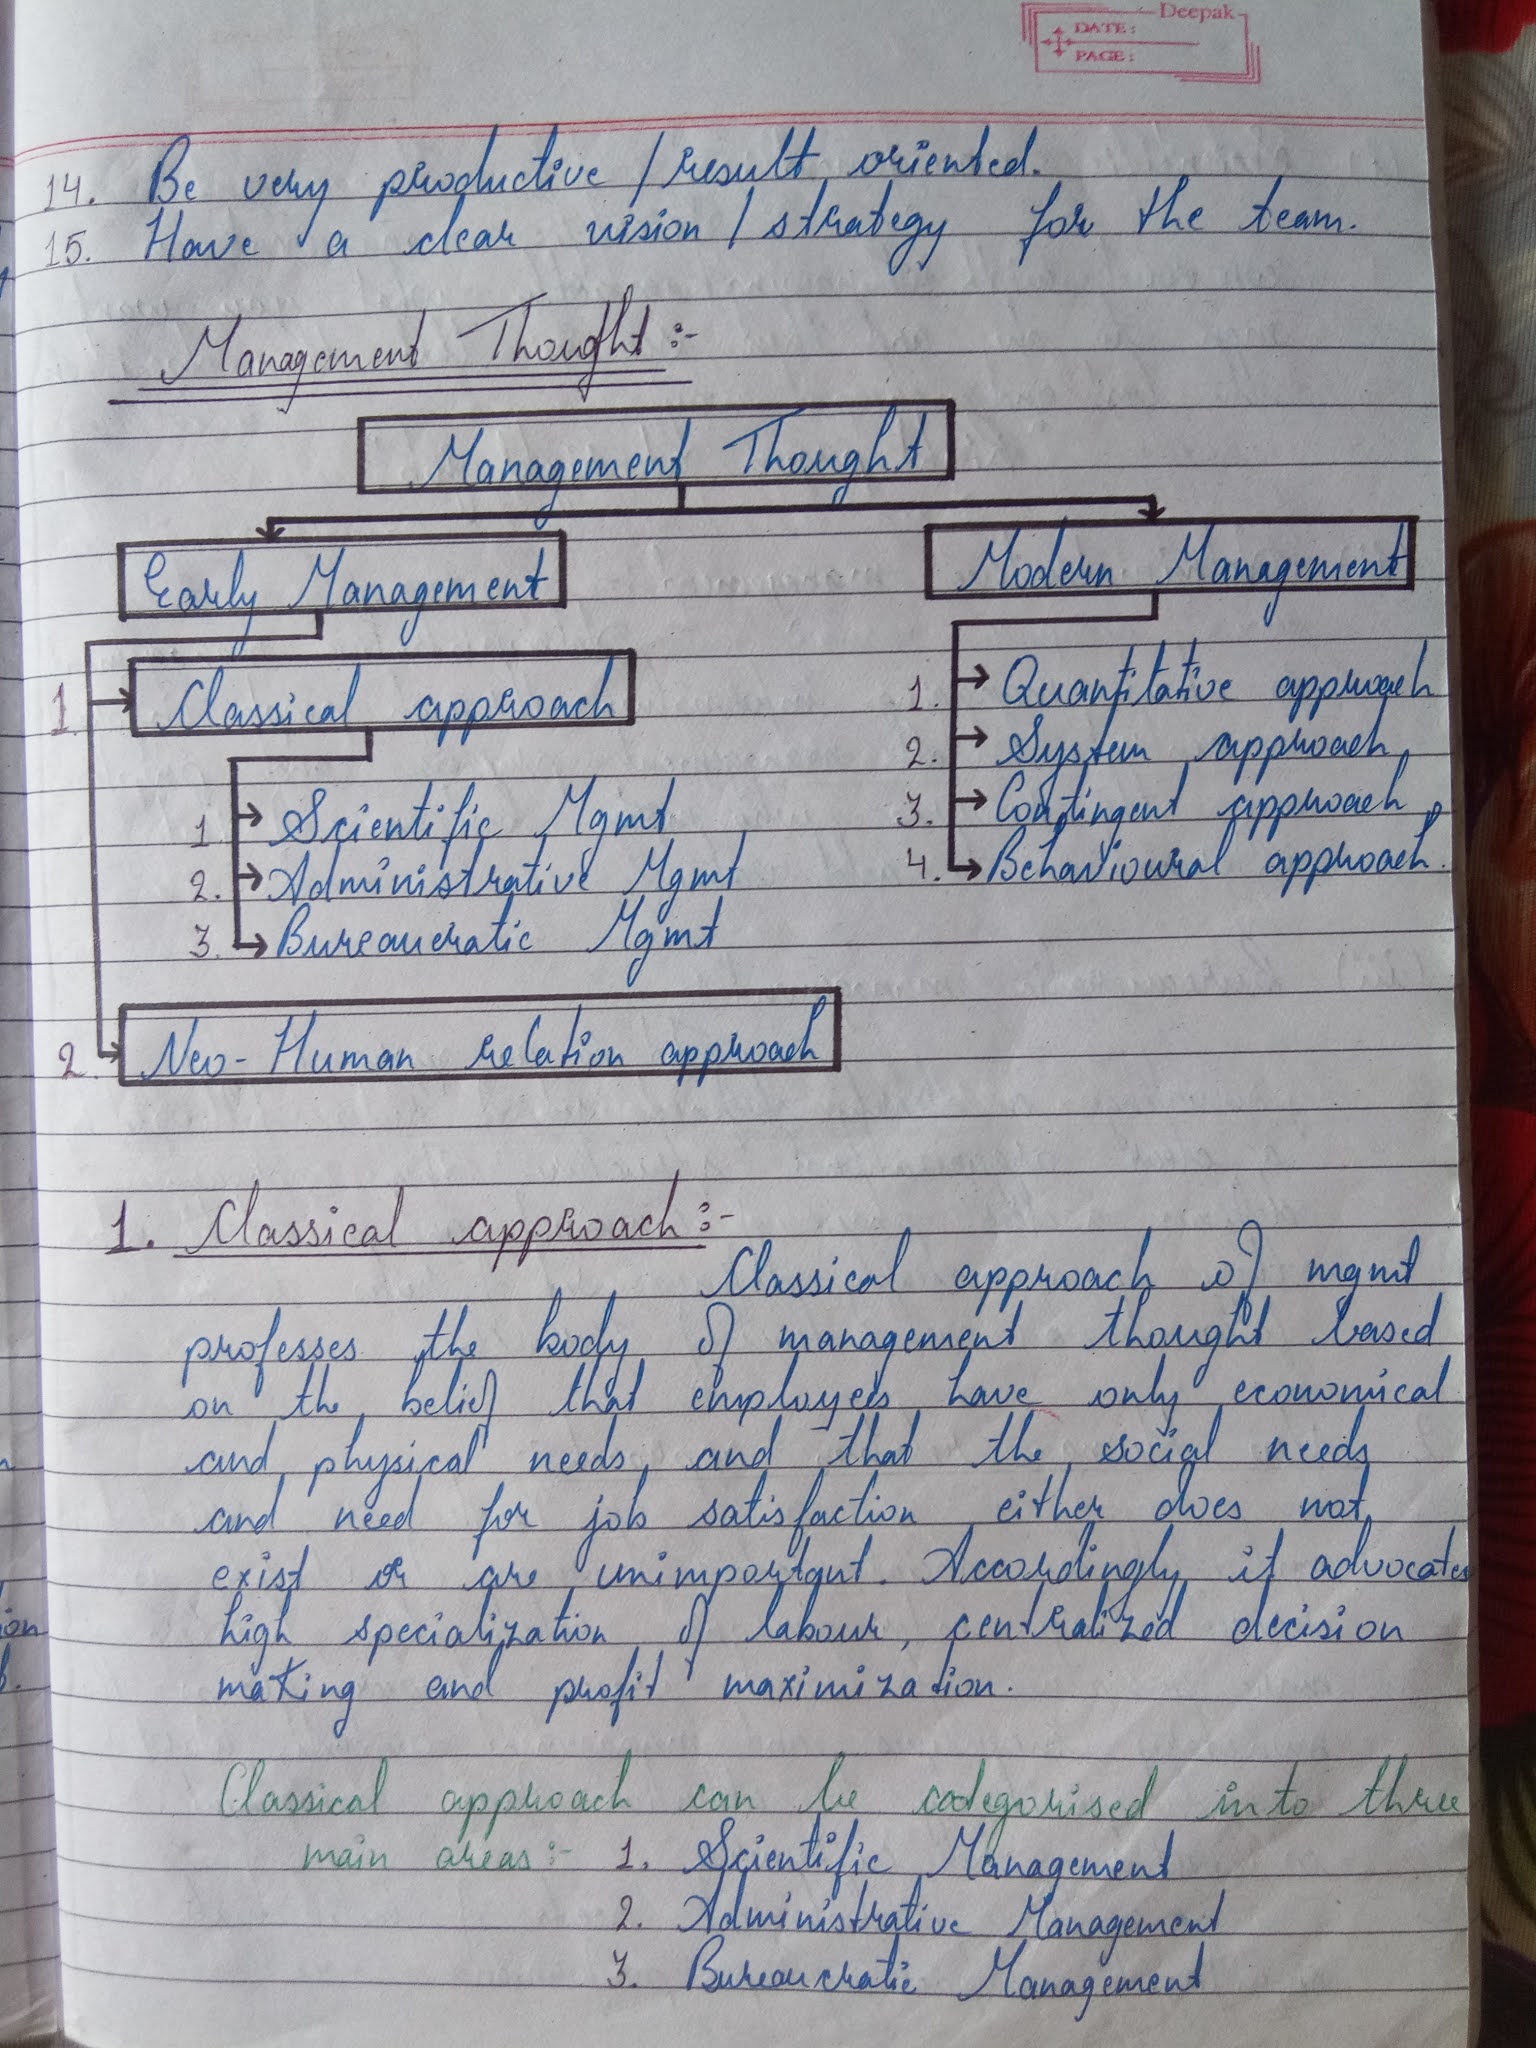 Deepak
DATE:
PAGE:
14. Be very productive / result oriented.
15. Have a clear vision / strategy for the team.
Management Thought :-
Management Thought
Early Management
Modern Management
1. Classical approach
1. Scientific Mgmt
2. Administrative Mgmt
3. Bureaucratic Mgmt
2. Neo-Human relation approach
1. Quantitative approach
2. System approach
3. Contingent approach
4. Behavioural approach.
1. Classical approach :-
Classical approach of mgmt
professes the body of management thought based
on the belief that employees have only economical
and physical needs, and that the social needs
and need for job satisfaction either does not
exist or are unimportant. Accordingly it advocates
high specialization of labour, centralized decision
making and profit maximization.
Classical approach can be categorised into three
main areas :- 1. Scientific Management
2. Administrative Management
3. Bureaucratic Management